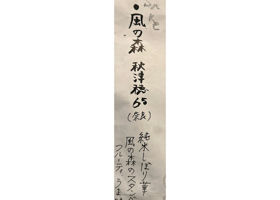 ・風の森 秋津穂65
(奈良)
純米しぼり華
風の森のスタンダ
フルーティ うま